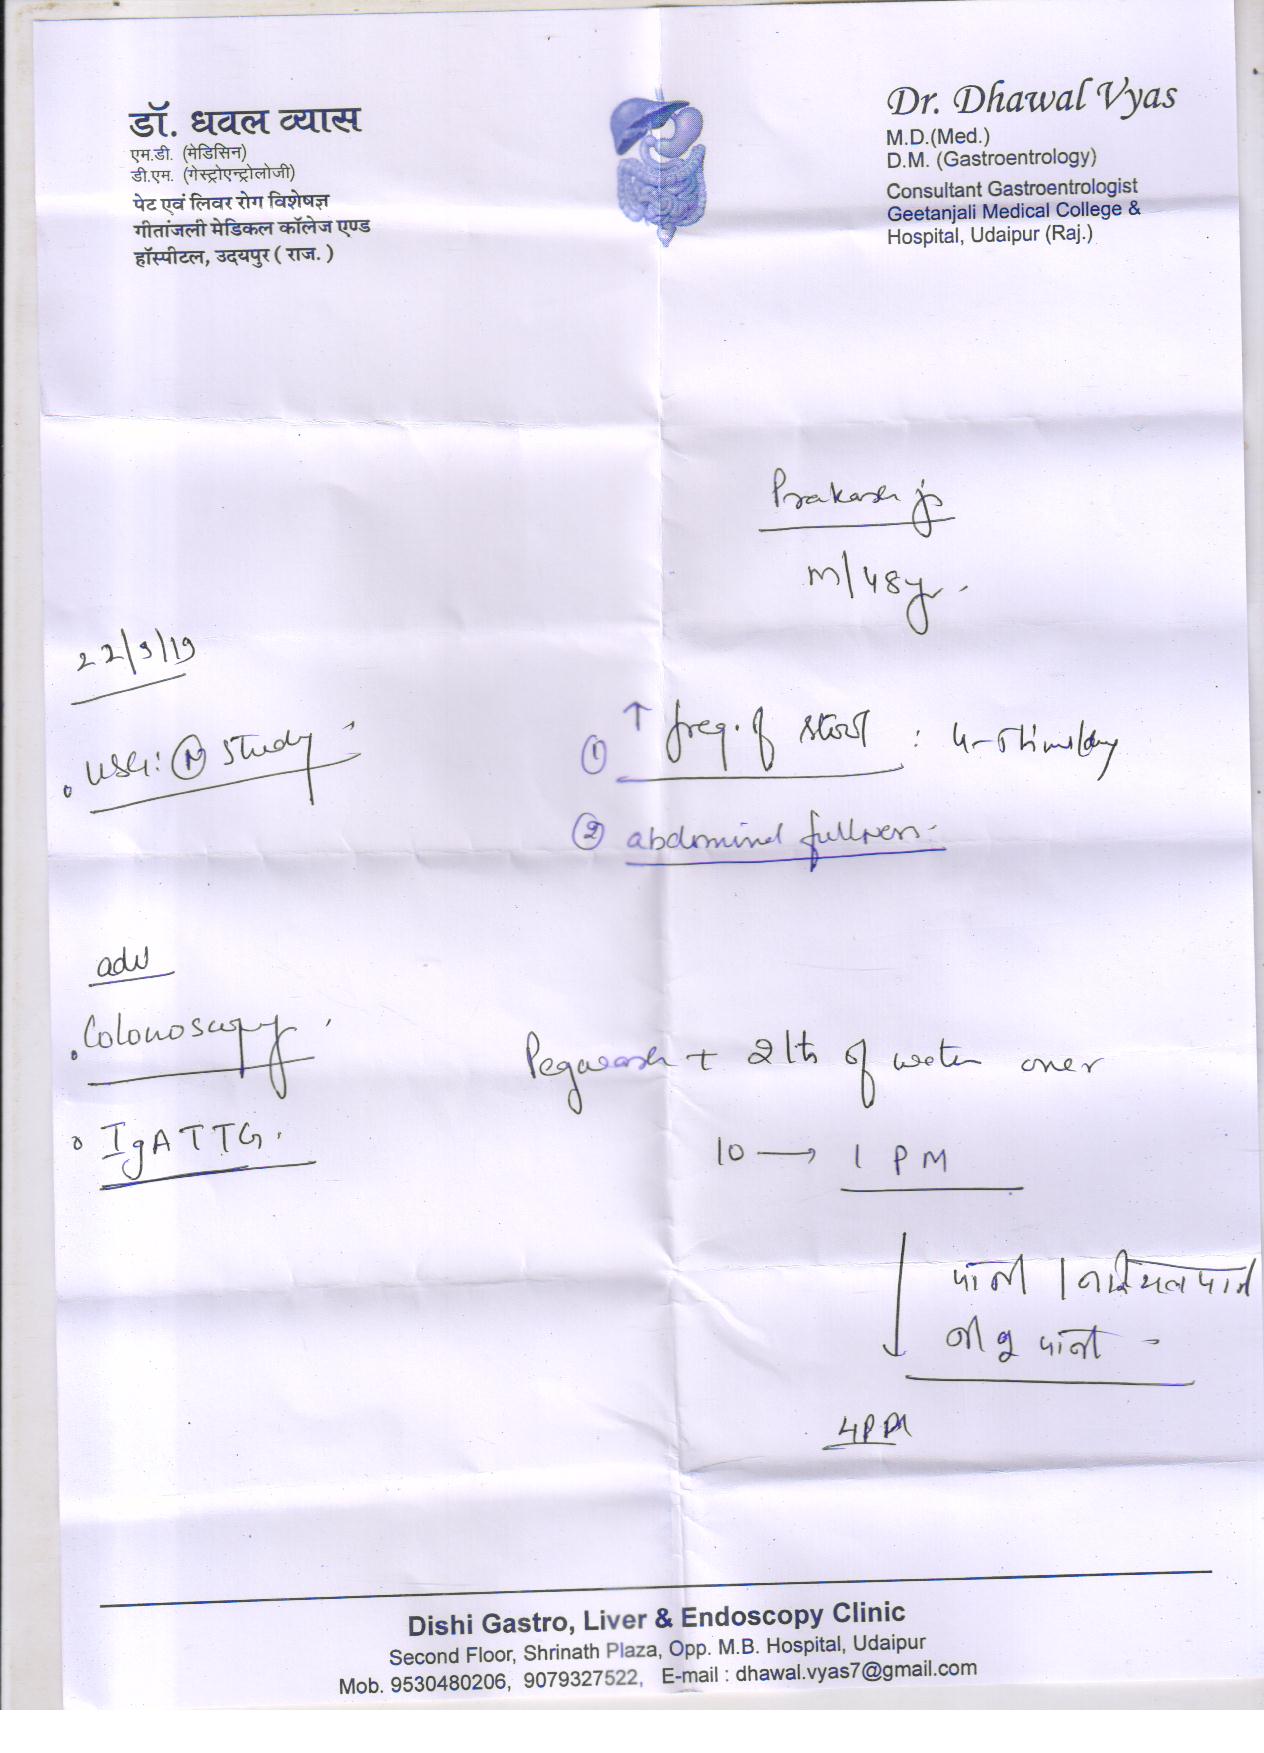 डॉ. धवल व्यास
एम.डी. (मेडिसिन)
डी.एम. (गेस्ट्रोएन्ट्रोलोजी)
पेट एवं लिवर रोग विशेषज्ञ
गीतांजली मेडिकल कॉलेज एण्ड
हॉस्पीटल, उदयपुर ( राज. )
Dr. Dhawal Vyas
M.D.(Med.)
D.M. (Gastroenterology)
Consultant Gastroenterologist
Geetanjali Medical College &
Hospital, Udaipur (Raj.)
Prakash ji
M/48y
22/9/19
USG: N study
① ↑ freq. of stool : 4-5 times/day
② abdominal fullness
adv
Colonoscopy
IgA TTG.
Pegwash + 2 lts of water over
10 → 1 PM
↓ पानी / नारियल पानी
नीबू पानी -
4PM
Dishi Gastro, Liver & Endoscopy Clinic
Second Floor, Shrinath Plaza, Opp. M.B. Hospital, Udaipur
Mob. 9530480206, 9079327522, E-mail : dhawal.vyas7@gmail.com